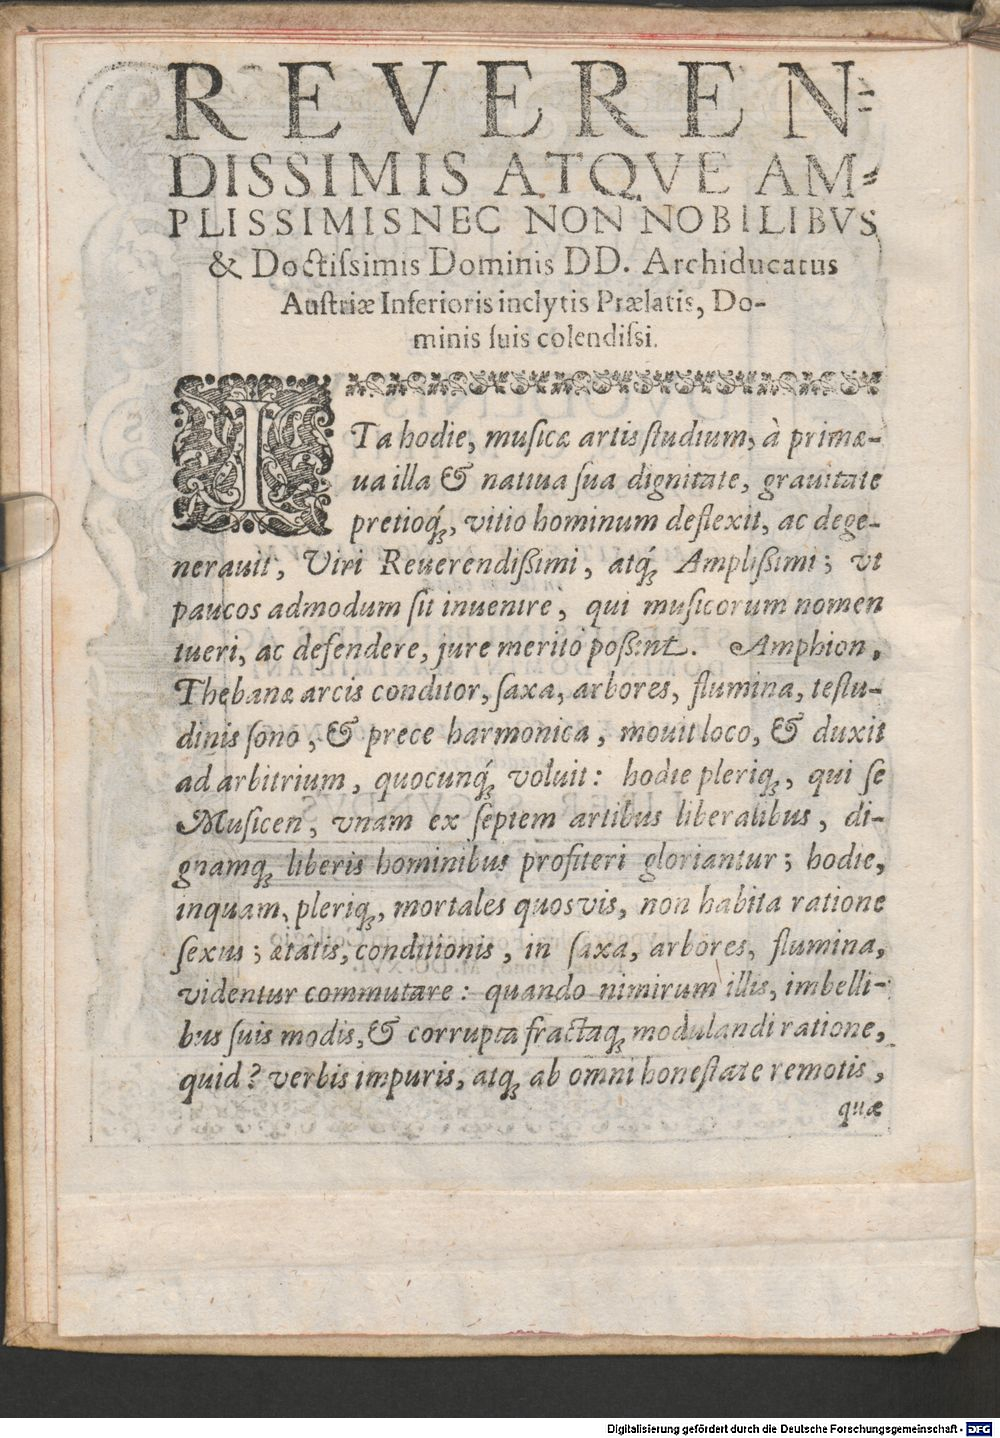 REVEREN-
DISSIMIS ATQVE AM-
PLISSIMIS NEC NON NOBILIBVS
& Doctiſsimis Dominis DD. Archiducatus
Auſtriæ Inferioris inclytis Prælatis, Do-
minis ſuis colendiſsi.
ITa hodie, muſicæ artis ſtudium, à primæ-
ua illa & natiua ſua dignitate, grauitate
pretioq́;, vitio hominum deflexit, ac dege-
nerauit, Viri Reuerendißimi, atq́; Amplißimi; vt
paucos admodum ſit inuenire, qui muſicorum nomen
tueri, ac defendere, jure meritò poßint. Amphion,
Thebanæ arcis conditor, ſaxa, arbores, flumina, teſtu-
dinis ſono, & prece harmonica, mouit loco, & duxit
ad arbitrium, quocunq́; voluit: hodie pleriq;, qui ſe
Muſicen, vnam ex ſeptem artibus liberalibus, di-
gnamq; liberis hominibus profiteri gloriantur; hodie,
inquam, pleriq;, mortales quosvis, non habita ratione
ſexus; ætatis, conditionis, in ſaxa, arbores, flumina,
videntur commutare: quando nimirum illis, imbelli-
bus ſuis modis, & corrupta fractaq; modulandi ratione,
quid? verbis impuris, atq; ab omni honeſtate remotis,
quæ
Digitalisierung gefördert durch die Deutsche Forschungsgemeinschaft - DFG